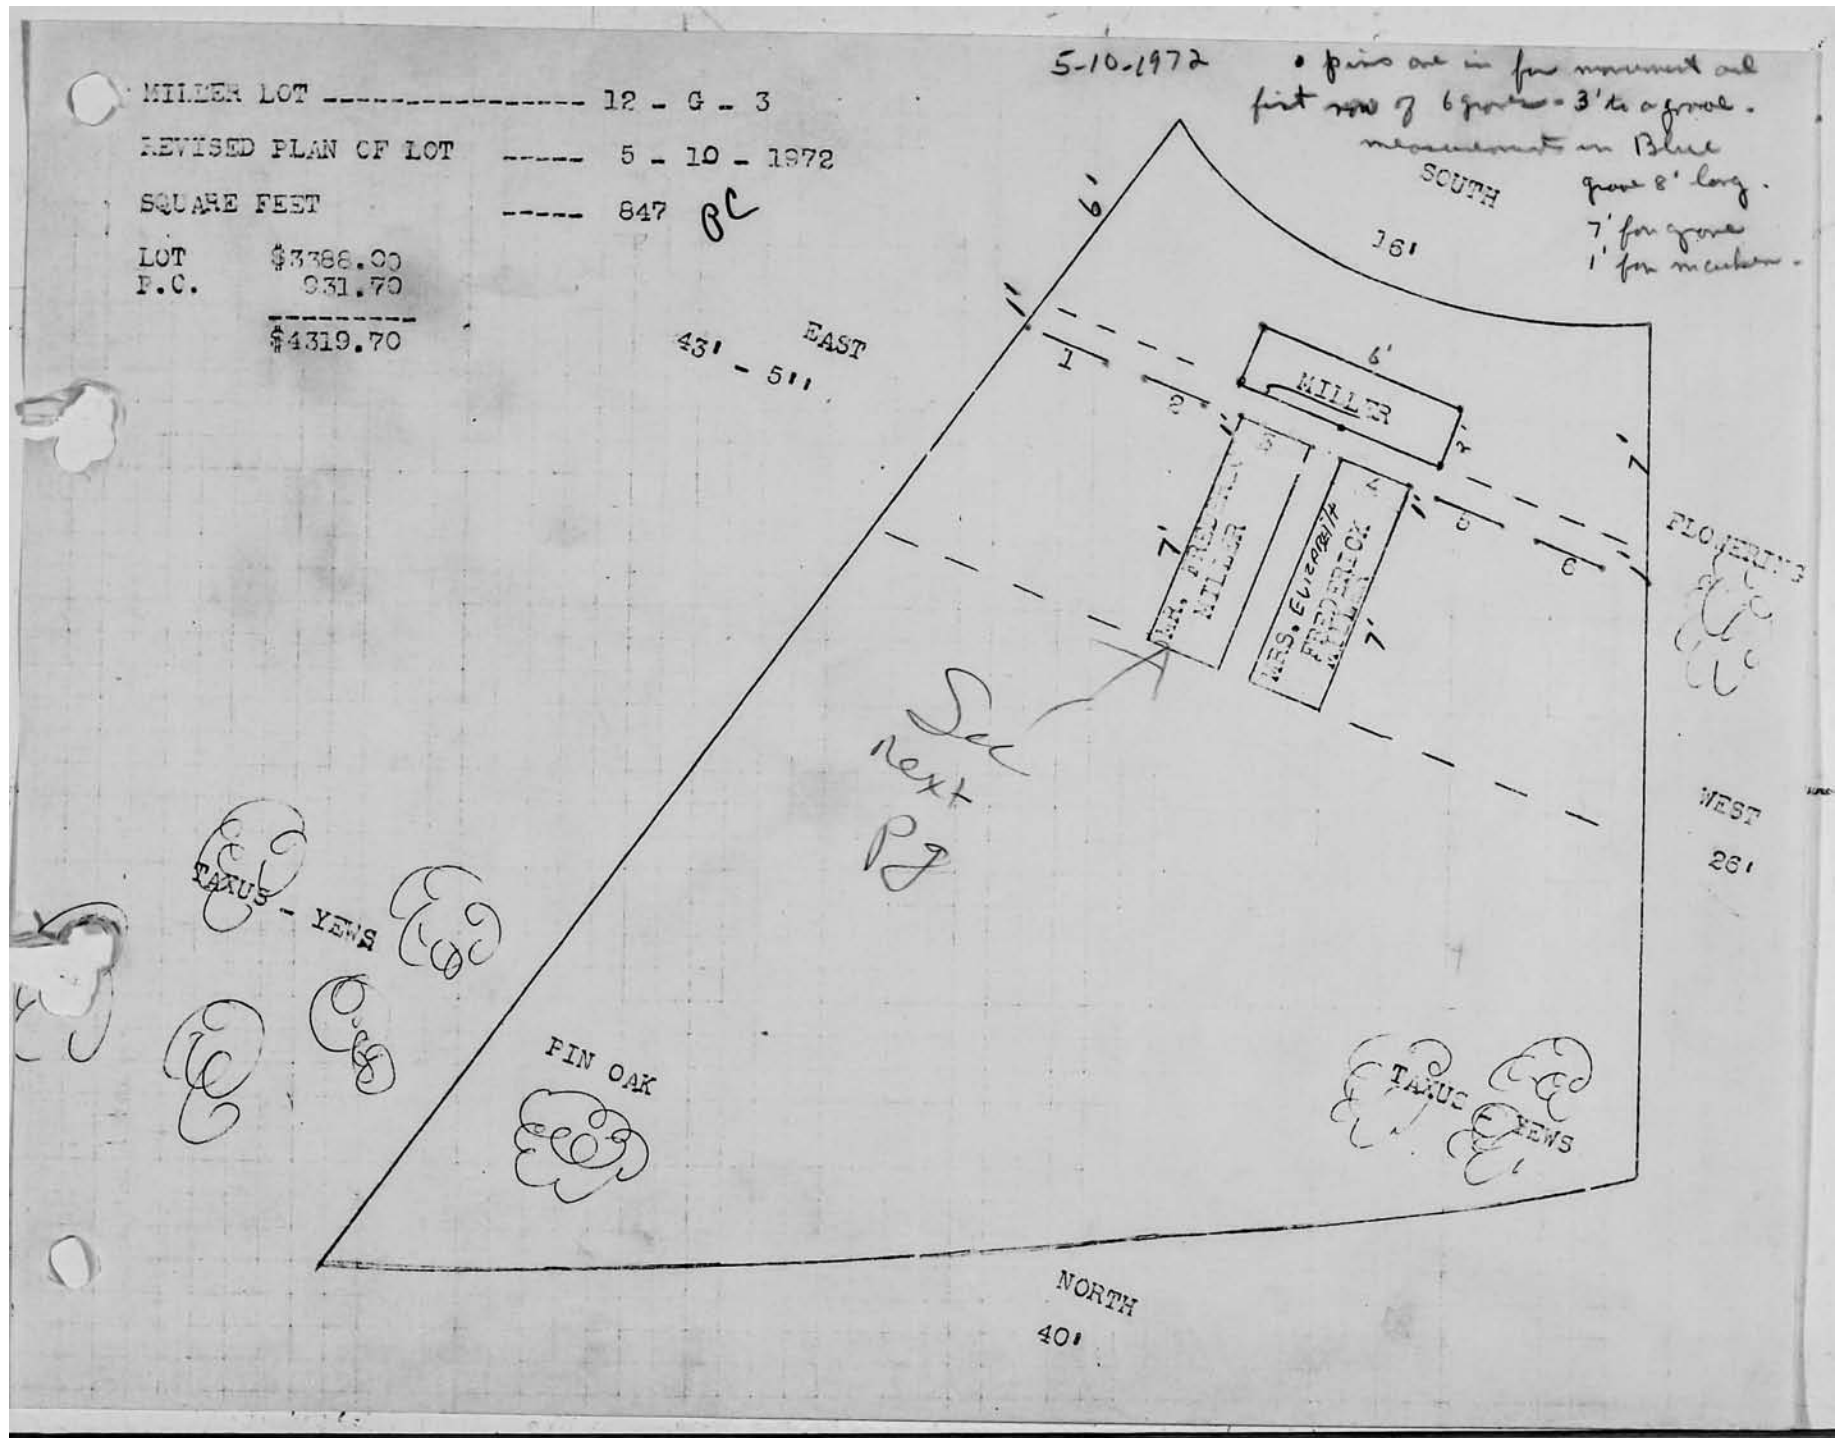 MILLER LOT ---------------- 12 - G - 3
REVISED PLAN OF LOT ----- 5 - 10 - 1972
SQUARE FEET ----- 847
LOT $3388.00
P.C. 931.70
----------
$4319.70
5-10-1972 • pins are in for monument and
first row of 6 graves - 3' to a grave.
measurements in Blue
grave 8' long.
7' for grave
1' for marker.
SOUTH
16'
6'
1'
EAST
43' - 5"
1
2
3
4
5
6
6'
MILLER
2'
7'
1'
1'
MR. FREDERICK
MILLER
7'
MRS. ELIZABETH
FREDERICK
MILLER
7'
FLOWERING
See
next
Pg
WEST
26'
TAXUS - YEWS
PIN OAK
TAXUS - YEWS
NORTH
40'